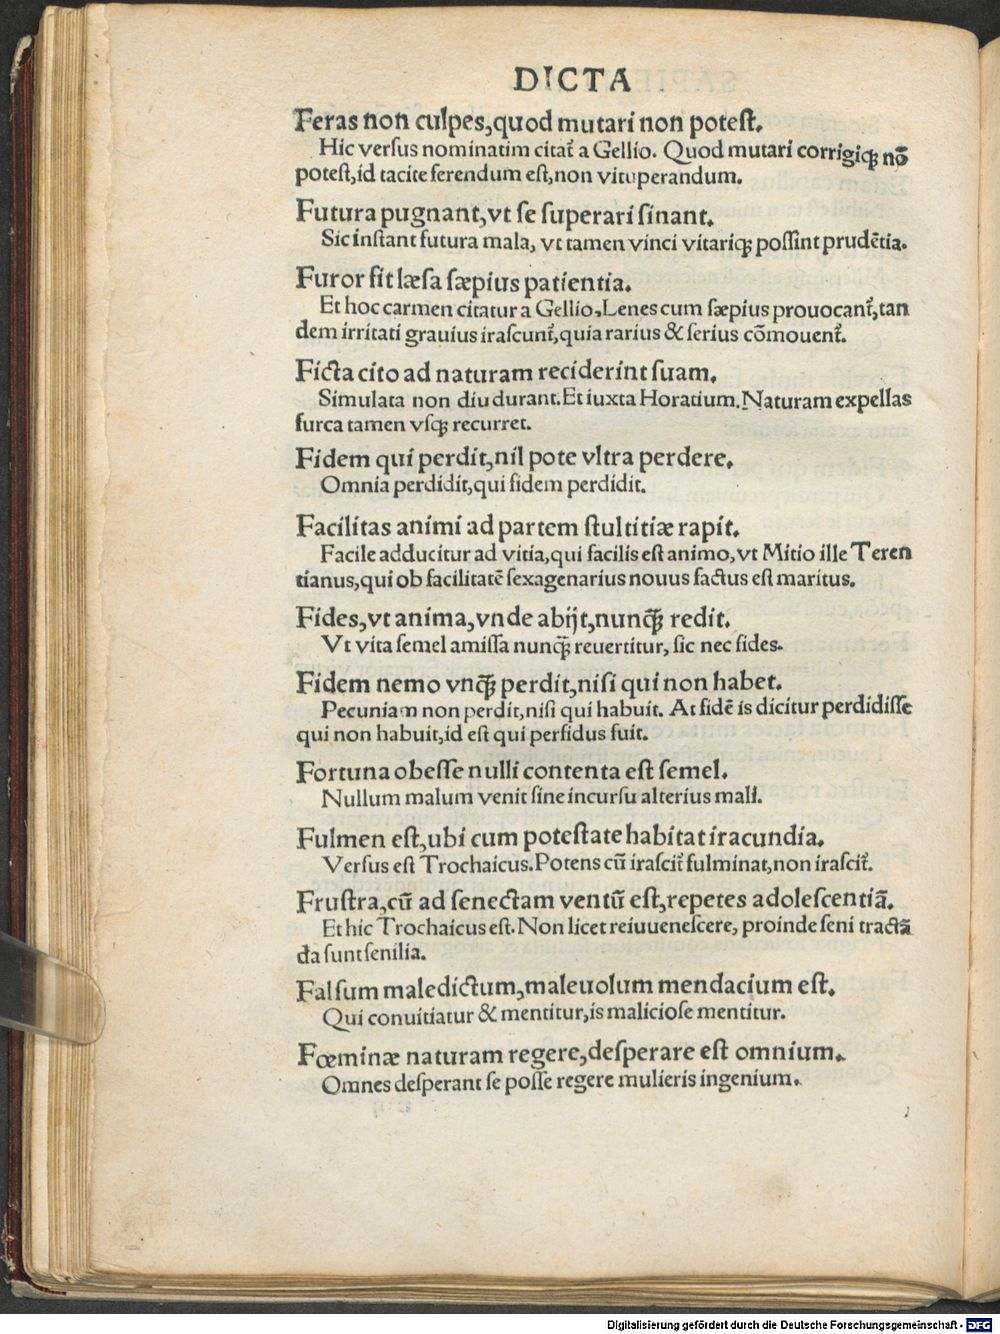 DICTA
Feras non culpes,quod mutari non potest.
Hic versus nominatim citat᷑ a Gellio. Quod mutari corrigiqꝫ nõ
potest,id tacite ferendum est,non vituperandum.
Futura pugnant,vt se superari sinant.
Sic instant futura mala, vt tamen vinci vitariqꝫ possint prudẽtia.
Furor fit læsa sæpius patientia.
Et hoc carmen citatur a Gellio,Lenes cum sæpius prouocant᷑,tan
dem irritati grauius irascunt᷑,quia rarius & serius cõmouent᷑.
Ficta cito ad naturam reciderint suam.
Simulata non diu durant.Et iuxta Horatium.Naturam expellas
furca tamen vsqꝫ recurret.
Fidem qui perdit,nil pote vltra perdere.
Omnia perdidit,qui fidem perdidit.
Facilitas animi ad partem stultitiæ rapit.
Facile adducitur ad vitia,qui facilis est animo,vt Mitio ille Teren
tianus,qui ob facilitatẽ sexagenarius nouus factus est maritus.
Fides,vt anima,vnde abijt,nunq̃ꝫ redit.
Vt vita semel amissa nunq̃ꝫ reuertitur, sic nec fides.
Fidem nemo vnq̃ꝫ perdit,nisi qui non habet.
Pecuniam non perdit,nisi qui habuit. At fidẽ is dicitur perdidisse
qui non habuit,id est qui perfidus fuit.
Fortuna obesse nulli contenta est semel.
Nullum malum venit sine incursu alterius mali.
Fulmen est,ubi cum potestate habitat iracundia.
Versus est Trochaicus.Potens cũ irascit᷑ fulminat,non irascit᷑.
Frustra,cũ ad senectam ventũ est,repetes adolescentiã.
Et hic Trochaicus est. Non licet reiuuenescere, proinde seni tractã
da sunt senilia.
Falsum maledictum,maleuolum mendacium est.
Qui conuitiatur & mentitur,is maliciose mentitur.
Fœminæ naturam regere,desperare est omnium.
Omnes desperant se posse regere mulieris ingenium.
Digitalisierung gefördert durch die Deutsche Forschungsgemeinschaft - DFG